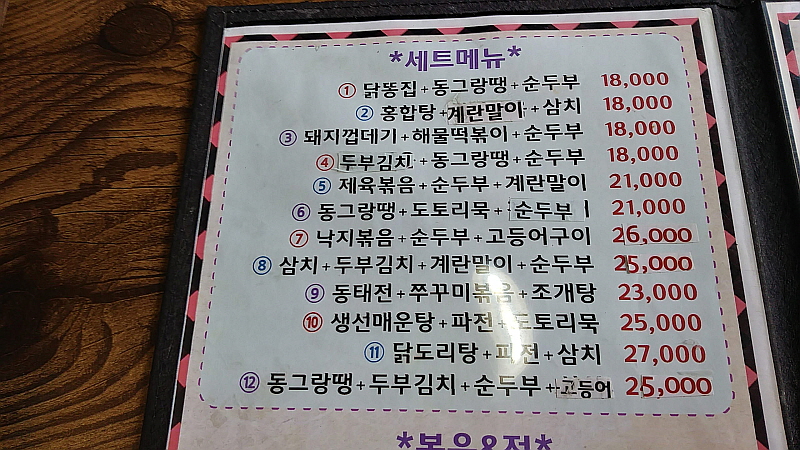 *세트메뉴*
① 닭똥집+동그랑땡+순두부 18,000
② 홍합탕+계란말이+삼치 18,000
③ 돼지껍데기+해물떡볶이+순두부 18,000
④ 두부김치+동그랑땡+순두부 18,000
⑤ 제육볶음+순두부+계란말이 21,000
⑥ 동그랑땡+도토리묵+순두부 21,000
⑦ 낙지볶음+순두부+고등어구이 26,000
⑧ 삼치+두부김치+계란말이+순두부 25,000
⑨ 동태전+쭈꾸미볶음+조개탕 23,000
⑩ 생선매운탕+파전+도토리묵 25,000
⑪ 닭도리탕+파전+삼치 27,000
⑫ 동그랑땡+두부김치+순두부+고등어 25,000